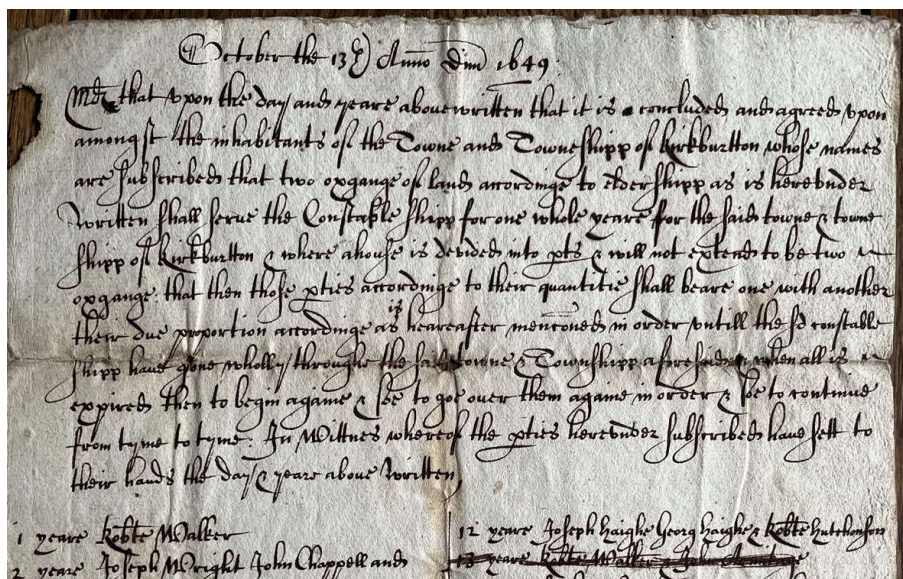 October the 13th Anno Dm 1649
Md that vpon the day and yeare abovewritten that it is concluded and agreed vpon
amongst the inhabitants of the Towne and Towneshipp of Kirkburtton whose names
are subscribed that two oxgange of land accordinge to eldershipp as is herevnder
written shall serve the Constable shipp for one whole yeare for the said towne & towne
shipp of Kirkburtton & where ahouse is devided into pts & will not extend to be two
oxgange: that then those pties accordinge to their quantitie shall beare one with another
their due proportion accordinge as is heareafter menconed in order vntill the sd constable
shipp have gone wholly throughe the said towne & Townshipp aforesaid & when all is
expired then to begin againe & soe to goe over them againe in order & soe to continue
from tyme to tyme: In Wittnes whereof the pties herevnder subscribed have sett to
their hands the day & yeare above written
1 yeare Robte Walker
2 yeare Joseph Wright John Chappell and
12 yeare Joseph Haighe Georg Haighe & Robte Hutchonson
13 yeare Robte Walker & John